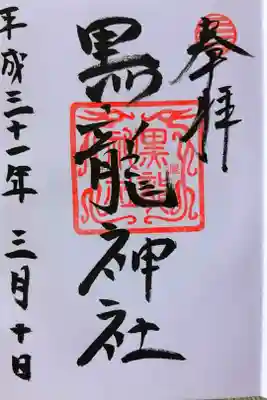 奉拝
黒龍神社
平成三十一年 三月十日